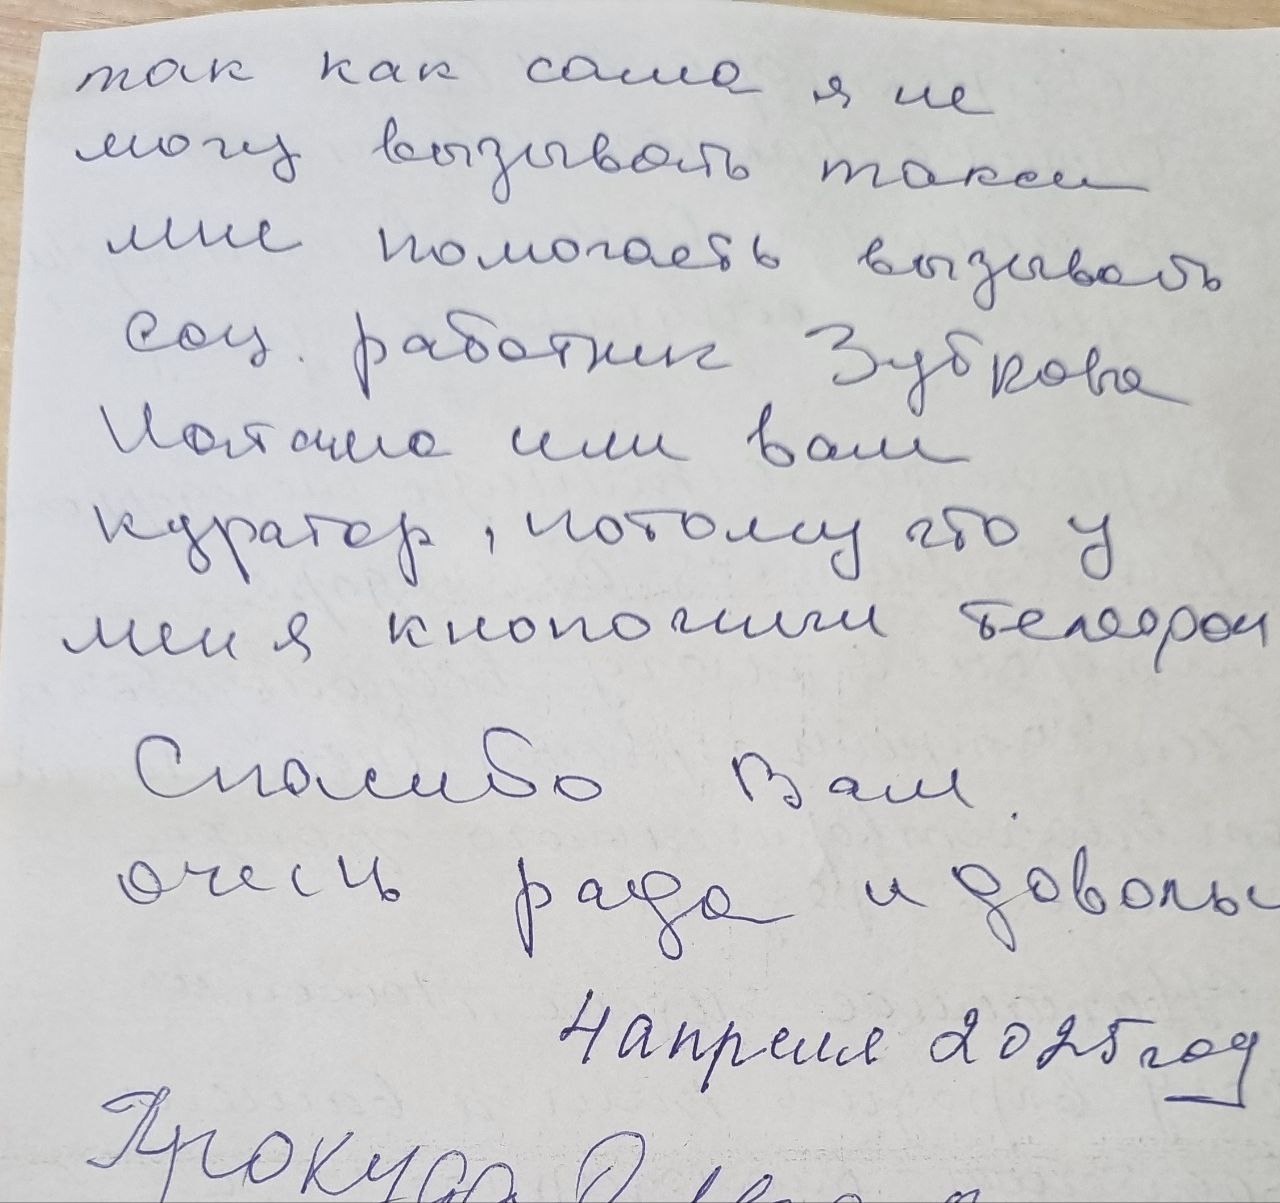 так как сама я не
могу вызывать такси
мне помогаеть вызывать
соц. работник Зубкова
или вам
куратор, потому что у
меня кнопочный телефон
Спасибо Вам.
очень рада и довольн
4 апреля 2025 год